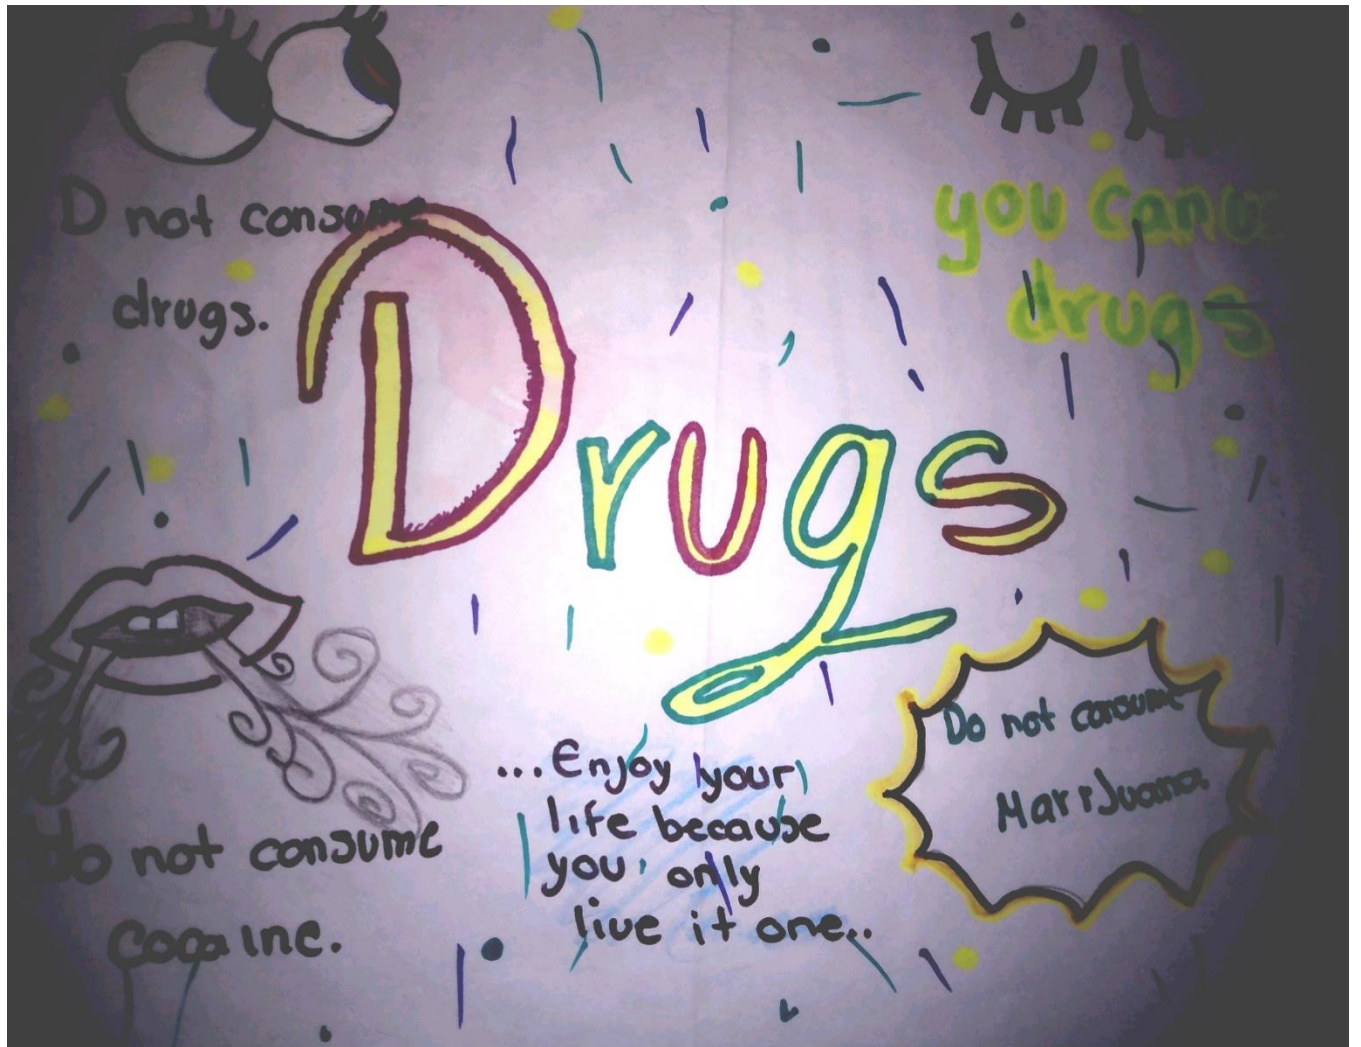 D not consume
drugs.
you can
drugs
Drugs
Do not consume
MariJuana.
...Enjoy your
life because
you only
live it one..
do not consume
cocaine.